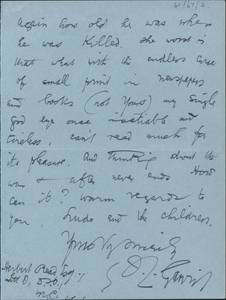 again how old he was when
he was killed. The worst is
that what with the endless
of small print in newspapers
and books (not yours) my single
good eye once insatiable and
tireless, can't read much for
its pleasure. And thinking about the
war & after never ends. How
can it? Warm regards to
you, and the children.
Yours sincerely
Herbert Read Esq.